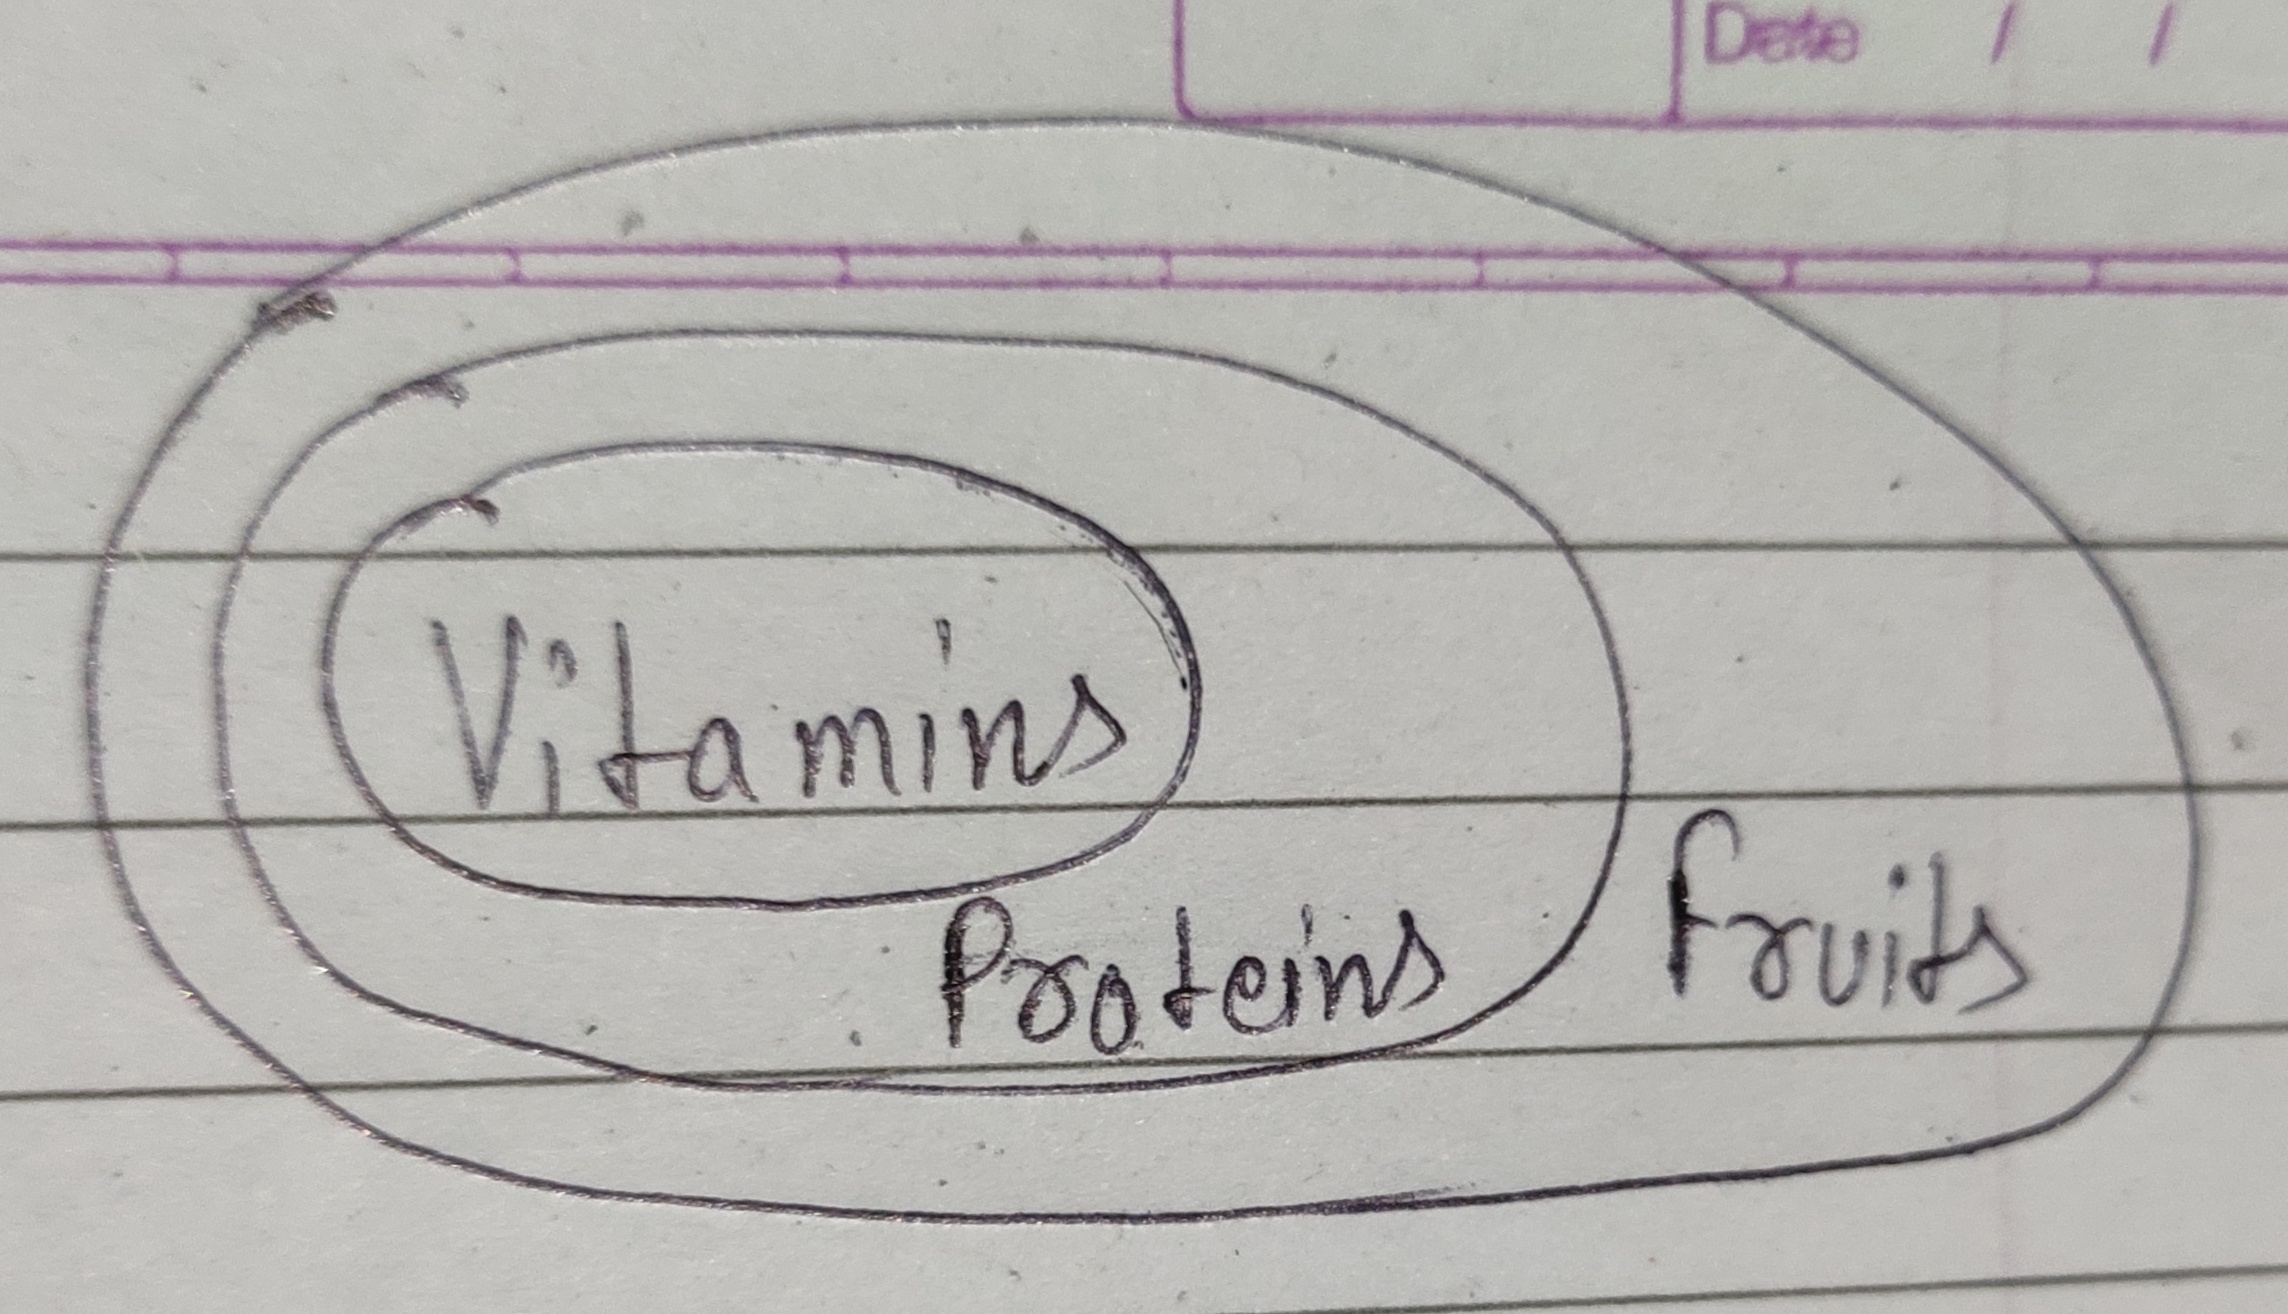 Date / /
Vitamins
Proteins
fruits